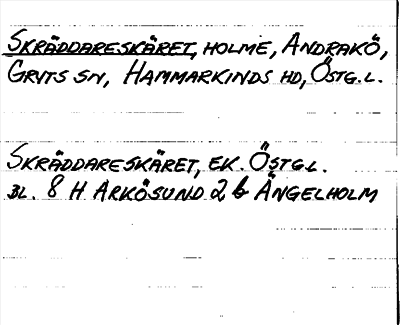 SKRÄDDARESKÄRET, HOLME, ANDRAKÖ,
GRYTS SN, HAMMARKINDS HD, ÖSTG.L.
SKRÄDDARESKÄRET, EK. ÖSTGL.
BL. 8 H ARKÖSUND 2 b ÄNGELHOLM